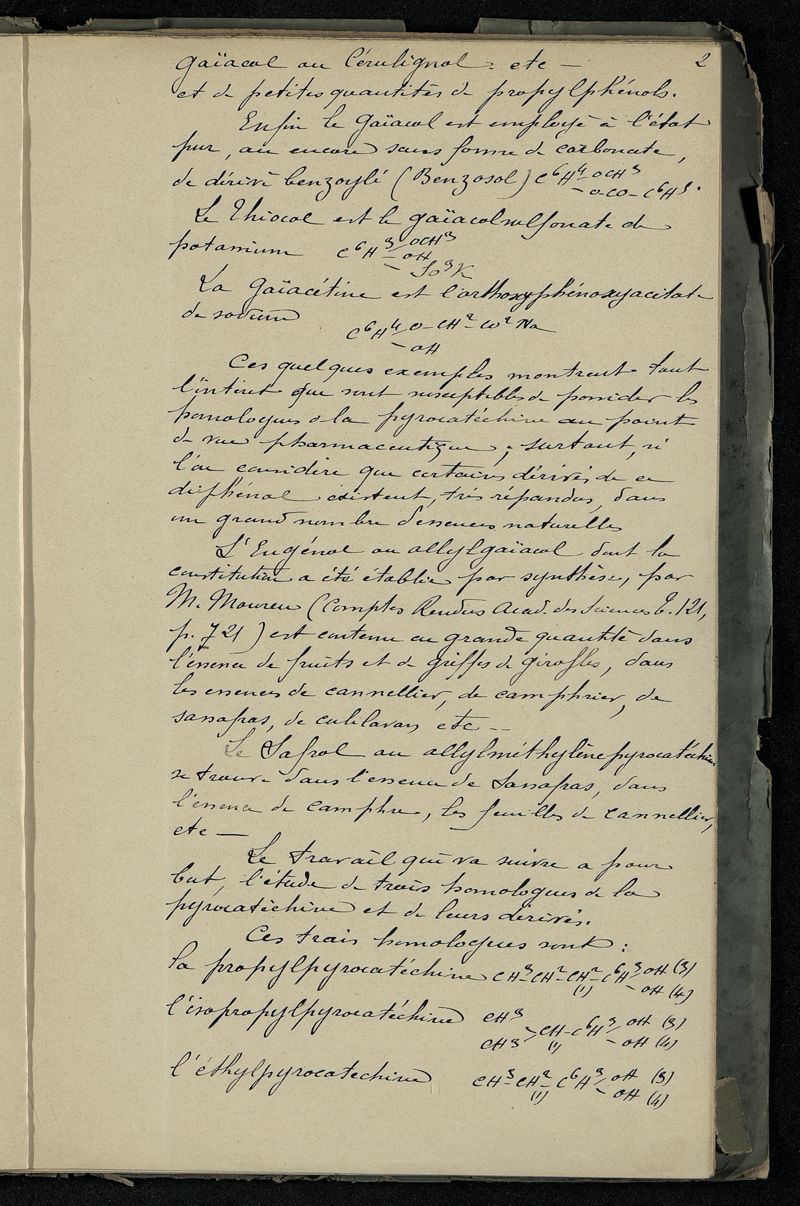 2
gaïacol ou Cérulignol : etc —
et de petites quantités de propylphénols.
Enfin le Gaïacol est employé à l'état
pur, ou encore sous forme de carbonate,
de dérivé benzoylé (Benzosol) C⁶H⁴ - OCH³
- O CO - C⁶H⁵.
Le Thiocol est le gaïacolsulfonate de
potassium C⁶H³ / OCH³
- OH
- SO³K
La Gaïacétine est l'orthoxyphénoxyacétate
de sodium C⁶H⁴ / O - CH² - CO² Na
- OH
Ces quelques exemples montrent tout
l'intérêt que sont susceptibles de posséder les
homologues de la pyrocatéchine au point
de vue pharmaceutique, surtout, si
l'on considère que certains dérivés de ce
diphénol existent, très répandus, dans
un grand nombre d'essences naturelles
L'Eugénol ou allylgaïacol dont la
constitution a été établie par synthèse, par
M. Moureu (Comptes Rendus Acad. des Sciences t. 121,
p. 721) est contenu en grande quantité dans
l'essence de fruits et de griffes de girofles, dans
les essences de cannellier, de camphrier, de
sassafras, de culilavan etc --
Le Safrol ou allylméthylènepyrocatéchine
se trouve dans l'essence de Sassafras, dans
l'essence de camphre, les feuilles de cannellier,
etc —
Le travail qui va suivre a pour
but, l'étude de trois homologues de la
pyrocatéchine et de leurs dérivés.
Ces trois homologues sont :
la propylpyrocatéchine CH³-CH²-CH²-C⁶H³ / OH (3)
(1) - OH (4)
l'isopropylpyrocatéchine CH³
CH³ > CH-C⁶H³ / OH (3)
(1) - OH (4)
l'éthylpyrocatechine CH³-CH²-C⁶H³ / OH (3)
(1) - OH (4)